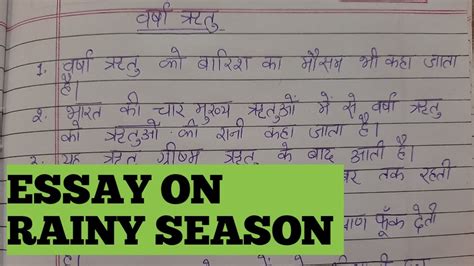 वर्षा ऋतु
1. वर्षा ऋतु को बारिश का मौसम भी कहा जाता
है।
२. भारत की चार मुख्य ऋतुओं में से वर्षा ऋतु
को ऋतुओं की रानी कहा जाता है।
3. यह ऋतु ग्रीष्म ऋतु के बाद आती है।
तक रहती
ESSAY ON
RAINY SEASON
फूँक देती